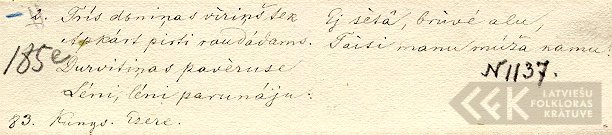 2. Trīs dieniņas vīriņš tek
Apkārt pirti raudādams.
Durvitiņas pavēruse
Lēni, lēni parunāju:
Ej sētā, brūvē alu,
Taisi manu mūža namu.
185e
N1137.
83. Kungs. Ezere.
LATVIEŠU
FOLKLORAS
KRĀTUVE